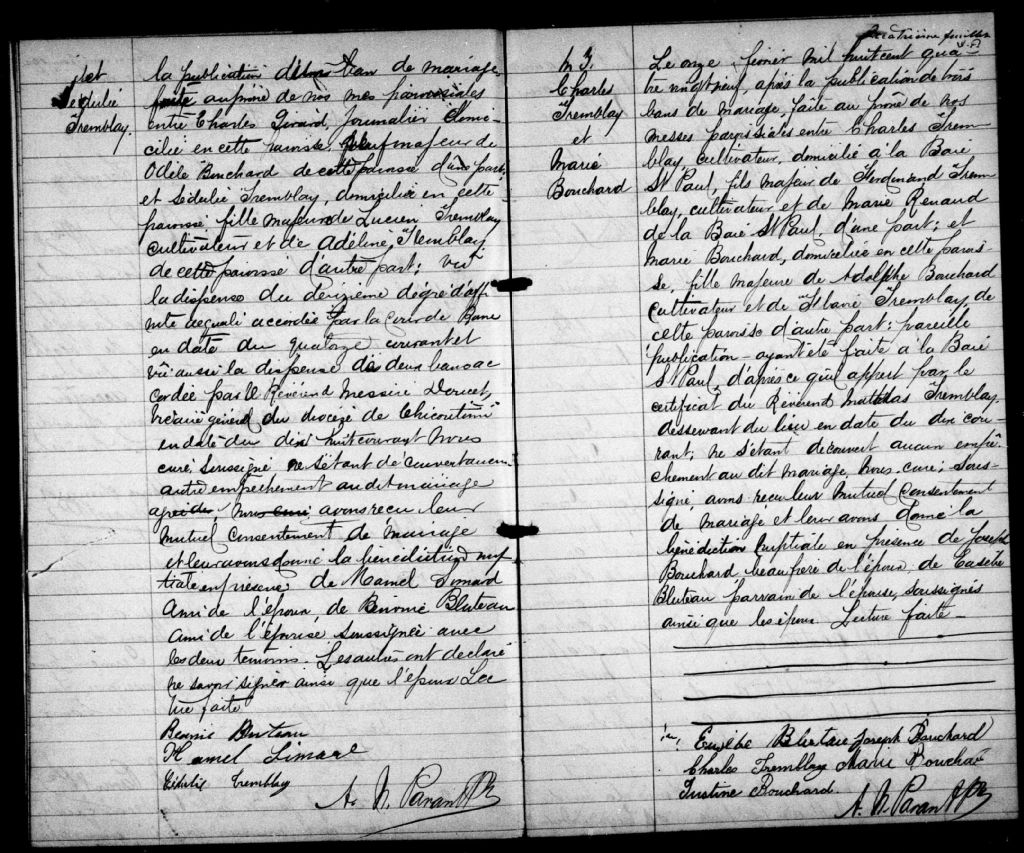 et
Sédulie
Tremblay.
la publication d'un ban de mariage
faite au prône de nos mes paroissiales
entre Charles Girard, Journalier domi-
cilié en cette paroisse, majeur de
Odèle Bouchard de cette paroisse d'une part,
et Séderlie Tremblay, domiciliée en cette
paroisse fille majeure de Lucien Tremblay
cultivateur et de Adéline Tremblay
de cette paroisse d'autre part; vu
la dispense du degré d'affi
nité accordée par la cour de Rome
en date du quatorze courant et
vu aussi la dispense de deux bans ac
cordée par le Révérend Messire Doucet,
vicaire général du diocèse de Chicoutimi
en date du dix huit courant Nous
curé, Soussigné ne s'étant découvert aucun
autre empêchement au dit mariage
avons reçu leur
Mutuel Consentement de mariage
et leur avons donné la bénédiction nup
tiale en présence de Hamel Simard
Ami de l'époux de Bluteau
Ami de l'épouse soussignée avec
les deux temoins. Les autres ont déclaré
ne savoir signer ainsi que l'époux Lec
ture faite
Hamel Simard
Tremblay
A. N. Parant Ptre
feuillet
M 3.
Charles
Tremblay
et
Marie
Bouchard
Le onze février mil huit cent qua-
tre vingt neuf, après la publication de trois
bans de mariage, faite au prône de nos
messes paroissiales entre Charles Trem
blay, cultivateur, domicilié à la Baie
St Paul, fils majeur de Ferdinand Trem
blay, cultivateur et de Marie Renaud
de la Baie St Paul, d'une part; et
Marie Bouchard, domiciliée en cette parois
se, fille majeure de Adolphe Bouchard
Cultivateur et de Marie Tremblay, de
cette paroisse d'autre part: pareille
publication ayant été faite à la Baie
St Paul, d'après ce qu'il appert par le
certificat du Révérend Tremblay
desservant du lieu en date du dix cou
rant; ne s'étant découvert aucun empê
chement au dit mariage, Nous curé, sous-
signé, avons reçu leur Mutuel Consentement
de mariage et leur avons donné la
bénédiction nuptiale en présence de Joseph
Bouchard beau frère de l'époux, de Eusèbe
Bluteau parrain de l'épouse, soussignés
ainsi que les époux. Lecture faite –
Eusèbe Bluteau Joseph Bouchard
Charles Tremblay Marie Bouchard
Justine Bouchard.
A. N. Parant Ptre